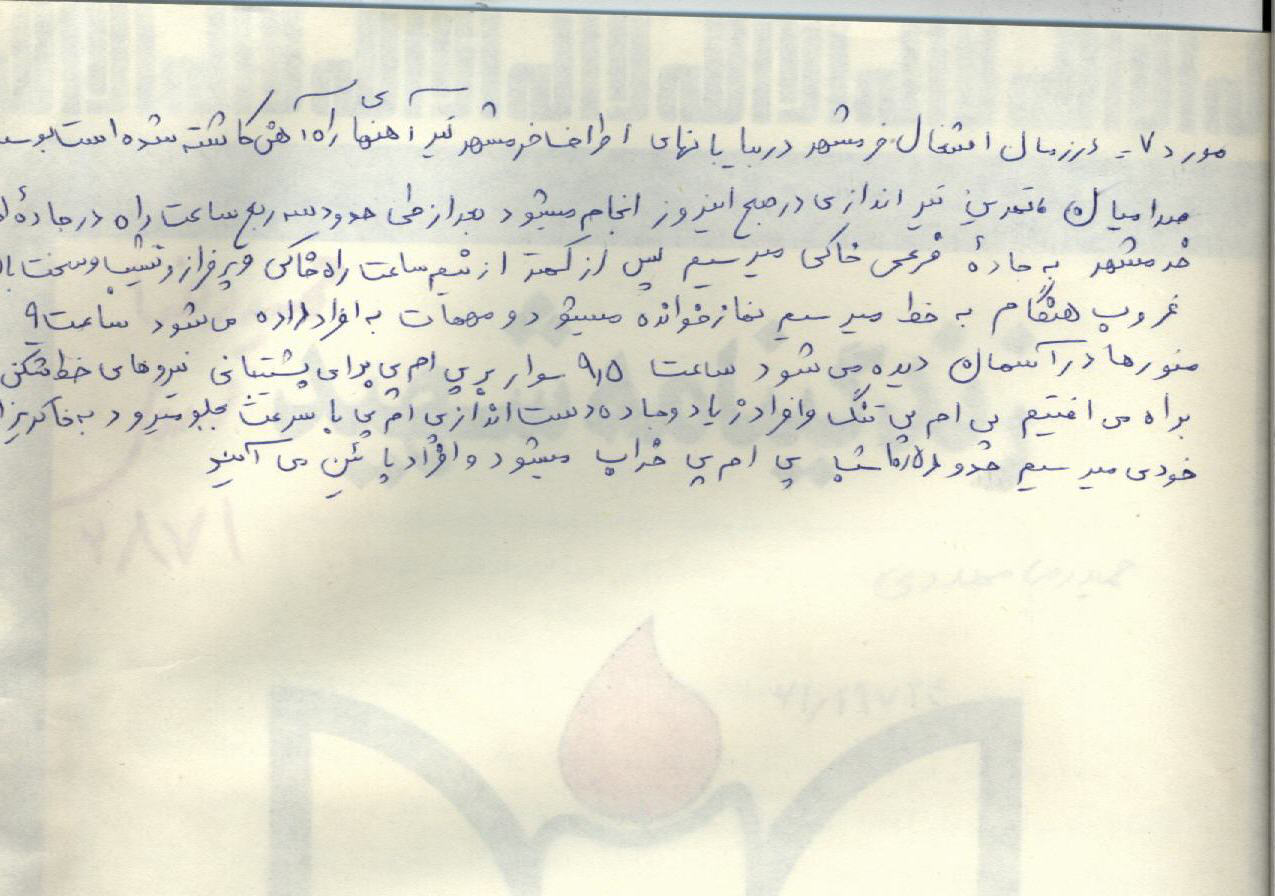 مورد ۷- در زمان اشغال خرمشهر در بیابانهای اطراف خرمشهر تیر آهنهای راه آهن کاشته شده است بوسـ
صدامیان، تمرین تیر اندازی در صبح امروز انجام میشود بعد از طی حدود سه ربع ساعت راه در جادهٔ
خرمشهر به جادهٔ فرعی خاکی میرسیم پس از کمتر از نیم ساعت راه خاکی و پر فراز و نشیب و سخت با
غروب هنگام به خط میرسیم نماز خوانده میشود و مهمات به افراد داده می‌شود ساعت ۹
منورها در آسمان دیده می‌شود ساعت ۹٫۵ سوار بر پی ام پی برای پشتیبانی نیروهای خط شکن
براه می افتیم پی ام پی تنگ و افراد زیاد و جاده دست اندازی ام پی با سرعت بجلو میرود به خاکریز
خودی میرسیم حدود شب پی ام پی خراب میشود و افراد پائین می آیند